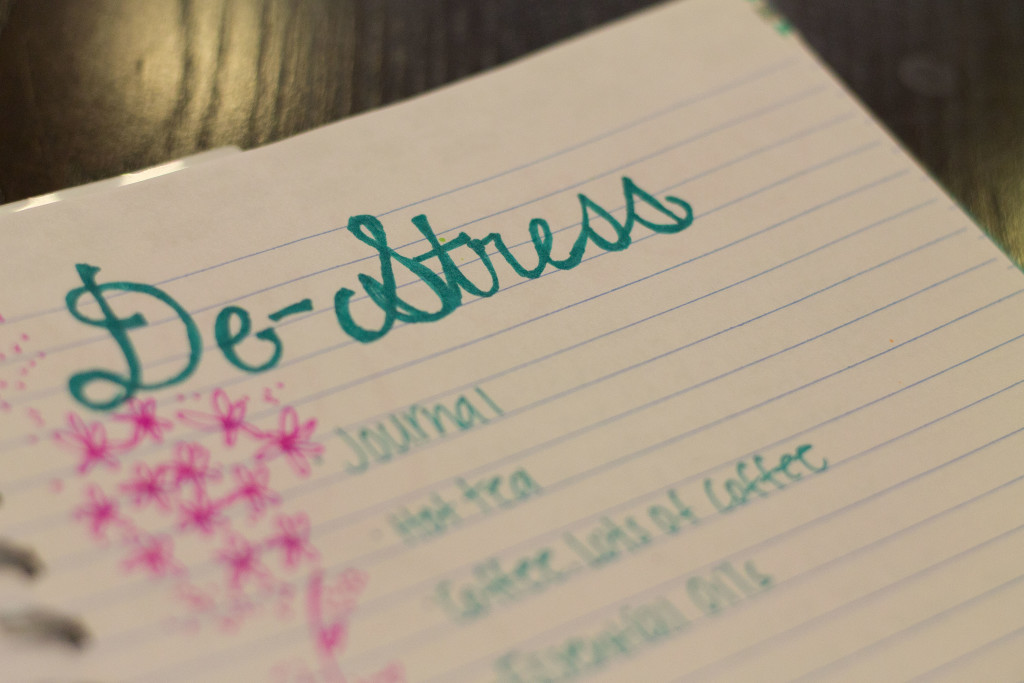 De-Stress
Journal
Hot tea
Coffee lots of coffee
Essential oils